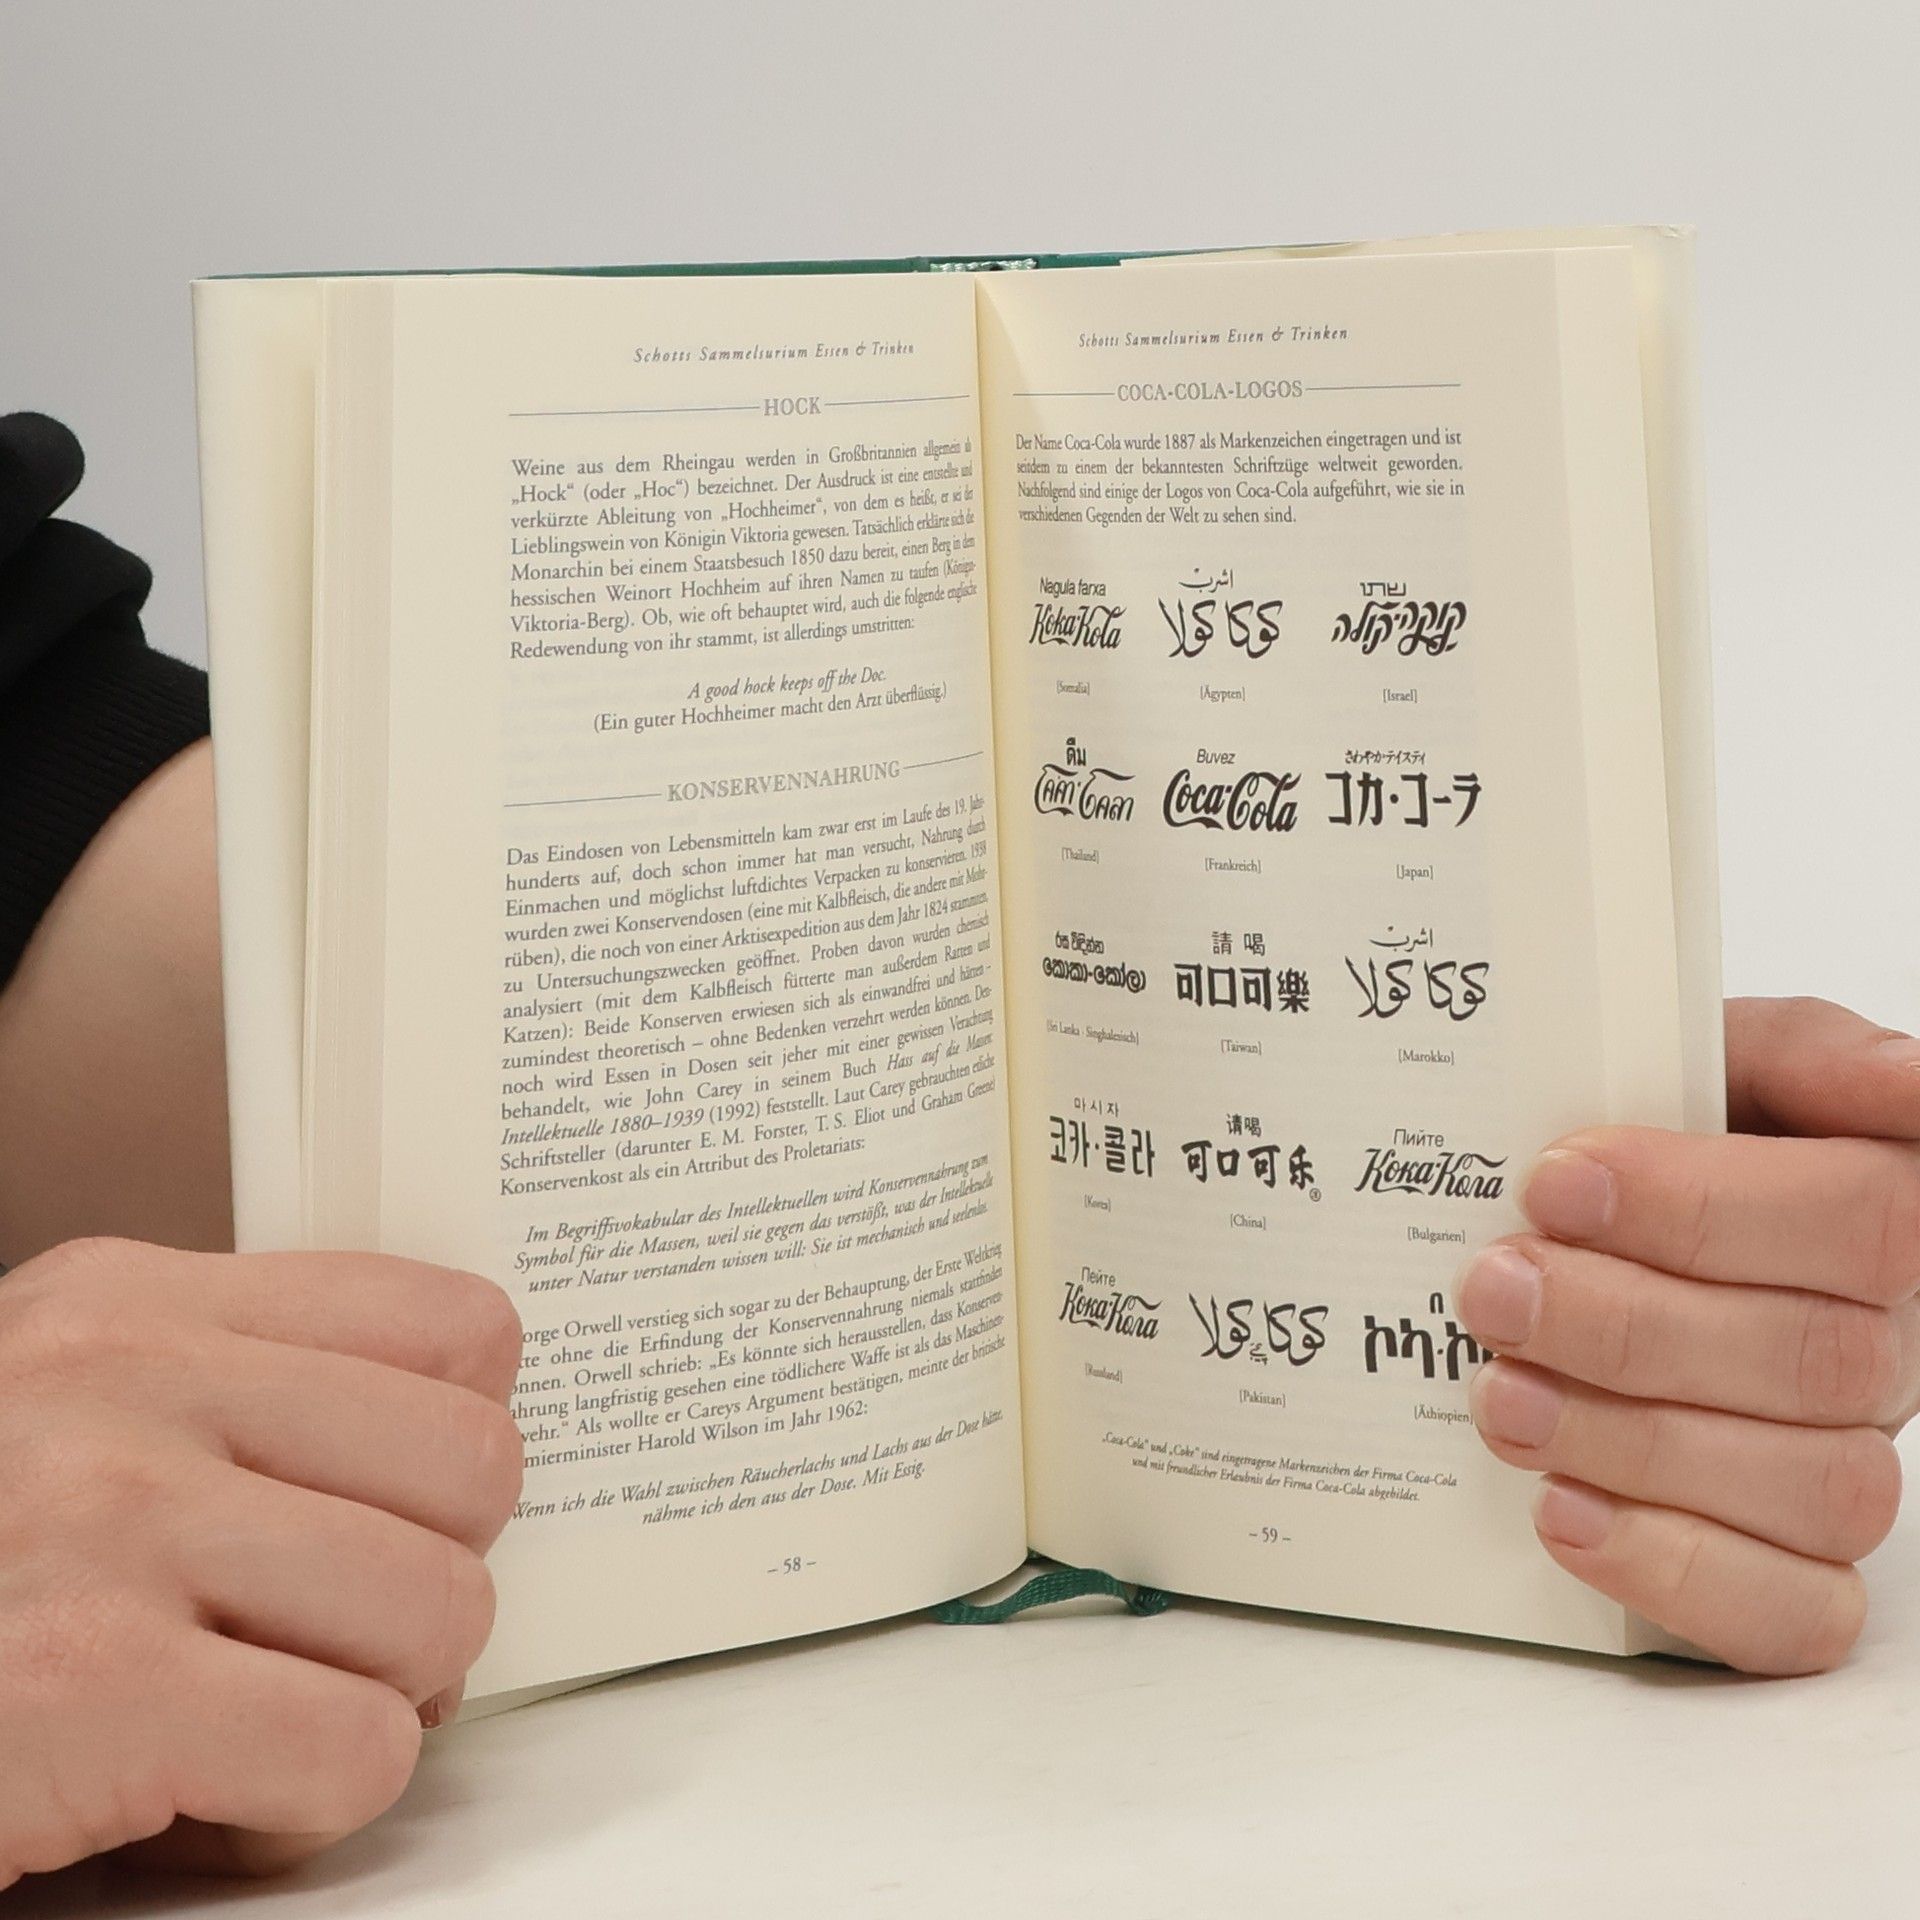 Schotts Sammelsurium Essen & Trinken
HOCK
Weine aus dem Rheingau werden in Großbritannien allgemein als
„Hock“ (oder „Hoc“) bezeichnet. Der Ausdruck ist eine entstellte und
verkürzte Ableitung von „Hochheimer“, von dem es heißt, er sei der
Lieblingswein von Königin Viktoria gewesen. Tatsächlich erklärte sich die
Monarchin bei einem Staatsbesuch 1850 dazu bereit, einen Berg in dem
hessischen Weinort Hochheim auf ihren Namen zu taufen (Königin-
Viktoria-Berg). Ob, wie oft behauptet wird, auch die folgende englische
Redewendung von ihr stammt, ist allerdings umstritten:
A good hock keeps off the Doc.
(Ein guter Hochheimer macht den Arzt überflüssig.)
KONSERVENNAHRUNG
Das Eindosen von Lebensmitteln kam zwar erst im Laufe des 19. Jahr-
hunderts auf, doch schon immer hat man versucht, Nahrung durch
Einmachen und möglichst luftdichtes Verpacken zu konservieren. 1938
wurden zwei Konservendosen (eine mit Kalbfleisch, die andere mit Mohr-
rüben), die noch von einer Arktisexpedition aus dem Jahr 1824 stammten,
zu Untersuchungszwecken geöffnet. Proben davon wurden chemisch
analysiert (mit dem Kalbfleisch fütterte man außerdem Ratten und
Katzen): Beide Konserven erwiesen sich als einwandfrei und hätten –
zumindest theoretisch – ohne Bedenken verzehrt werden können. Den-
noch wird Essen in Dosen seit jeher mit einer gewissen Verachtung
behandelt, wie John Carey in seinem Buch Hass auf die Massen:
Intellektuelle 1880–1939 (1992) feststellt. Laut Carey gebrauchten etliche
Schriftsteller (darunter E. M. Forster, T. S. Eliot und Graham Greene)
Konservenkost als ein Attribut des Proletariats:
Im Begriffsvokabular des Intellektuellen wird Konservennahrung zum
Symbol für die Massen, weil sie gegen das verstößt, was der Intellektuelle
unter Natur verstanden wissen will: Sie ist mechanisch und seelenlos.
orge Orwell verstieg sich sogar zu der Behauptung, der Erste Weltkrieg
tte ohne die Erfindung der Konservennahrung niemals stattfinden
önnen. Orwell schrieb: „Es könnte sich herausstellen, dass Konserven-
ahrung langfristig gesehen eine tödlichere Waffe ist als das Maschinen-
wehr.“ Als wollte er Careys Argument bestätigen, meinte der britische
mierminister Harold Wilson im Jahr 1962:
Wenn ich die Wahl zwischen Räucherlachs und Lachs aus der Dose hätte,
nähme ich den aus der Dose. Mit Essig.
– 58 –
Schotts Sammelsurium Essen & Trinken
COCA-COLA-LOGOS
Der Name Coca-Cola wurde 1887 als Markenzeichen eingetragen und ist
seitdem zu einem der bekanntesten Schriftzüge weltweit geworden.
Nachfolgend sind einige der Logos von Coca-Cola aufgeführt, wie sie in
verschiedenen Gegenden der Welt zu sehen sind.
Nagula farxa اشرب שתו
Koka-Kola كوكا كولا קוקה-קולה
[Somalia] [Ägypten] [Israel]
ดื่ม Buvez さわやか・テイスティ
โคคา-โคลา Coca-Cola コカ・コーラ
[Thailand] [Frankreich] [Japan]
රස විඳින්න 請喝 اشرب
කොකා-කෝලා 可口可樂 كوكا كولا
[Sri Lanka · Singhalesisch] [Taiwan] [Marokko]
마시자 请喝 Пийте
코카·콜라 可口可乐® Кока-Кола
[Korea] [China] [Bulgarien]
Пейте
Кока-Кола کوکا کولا ኮካ·ኮ
[Russland] [Pakistan] [Äthiopien]
„Coca-Cola“ und „Coke“ sind eingetragene Markenzeichen der Firma Coca-Cola
und mit freundlicher Erlaubnis der Firma Coca-Cola abgebildet.
– 59 –